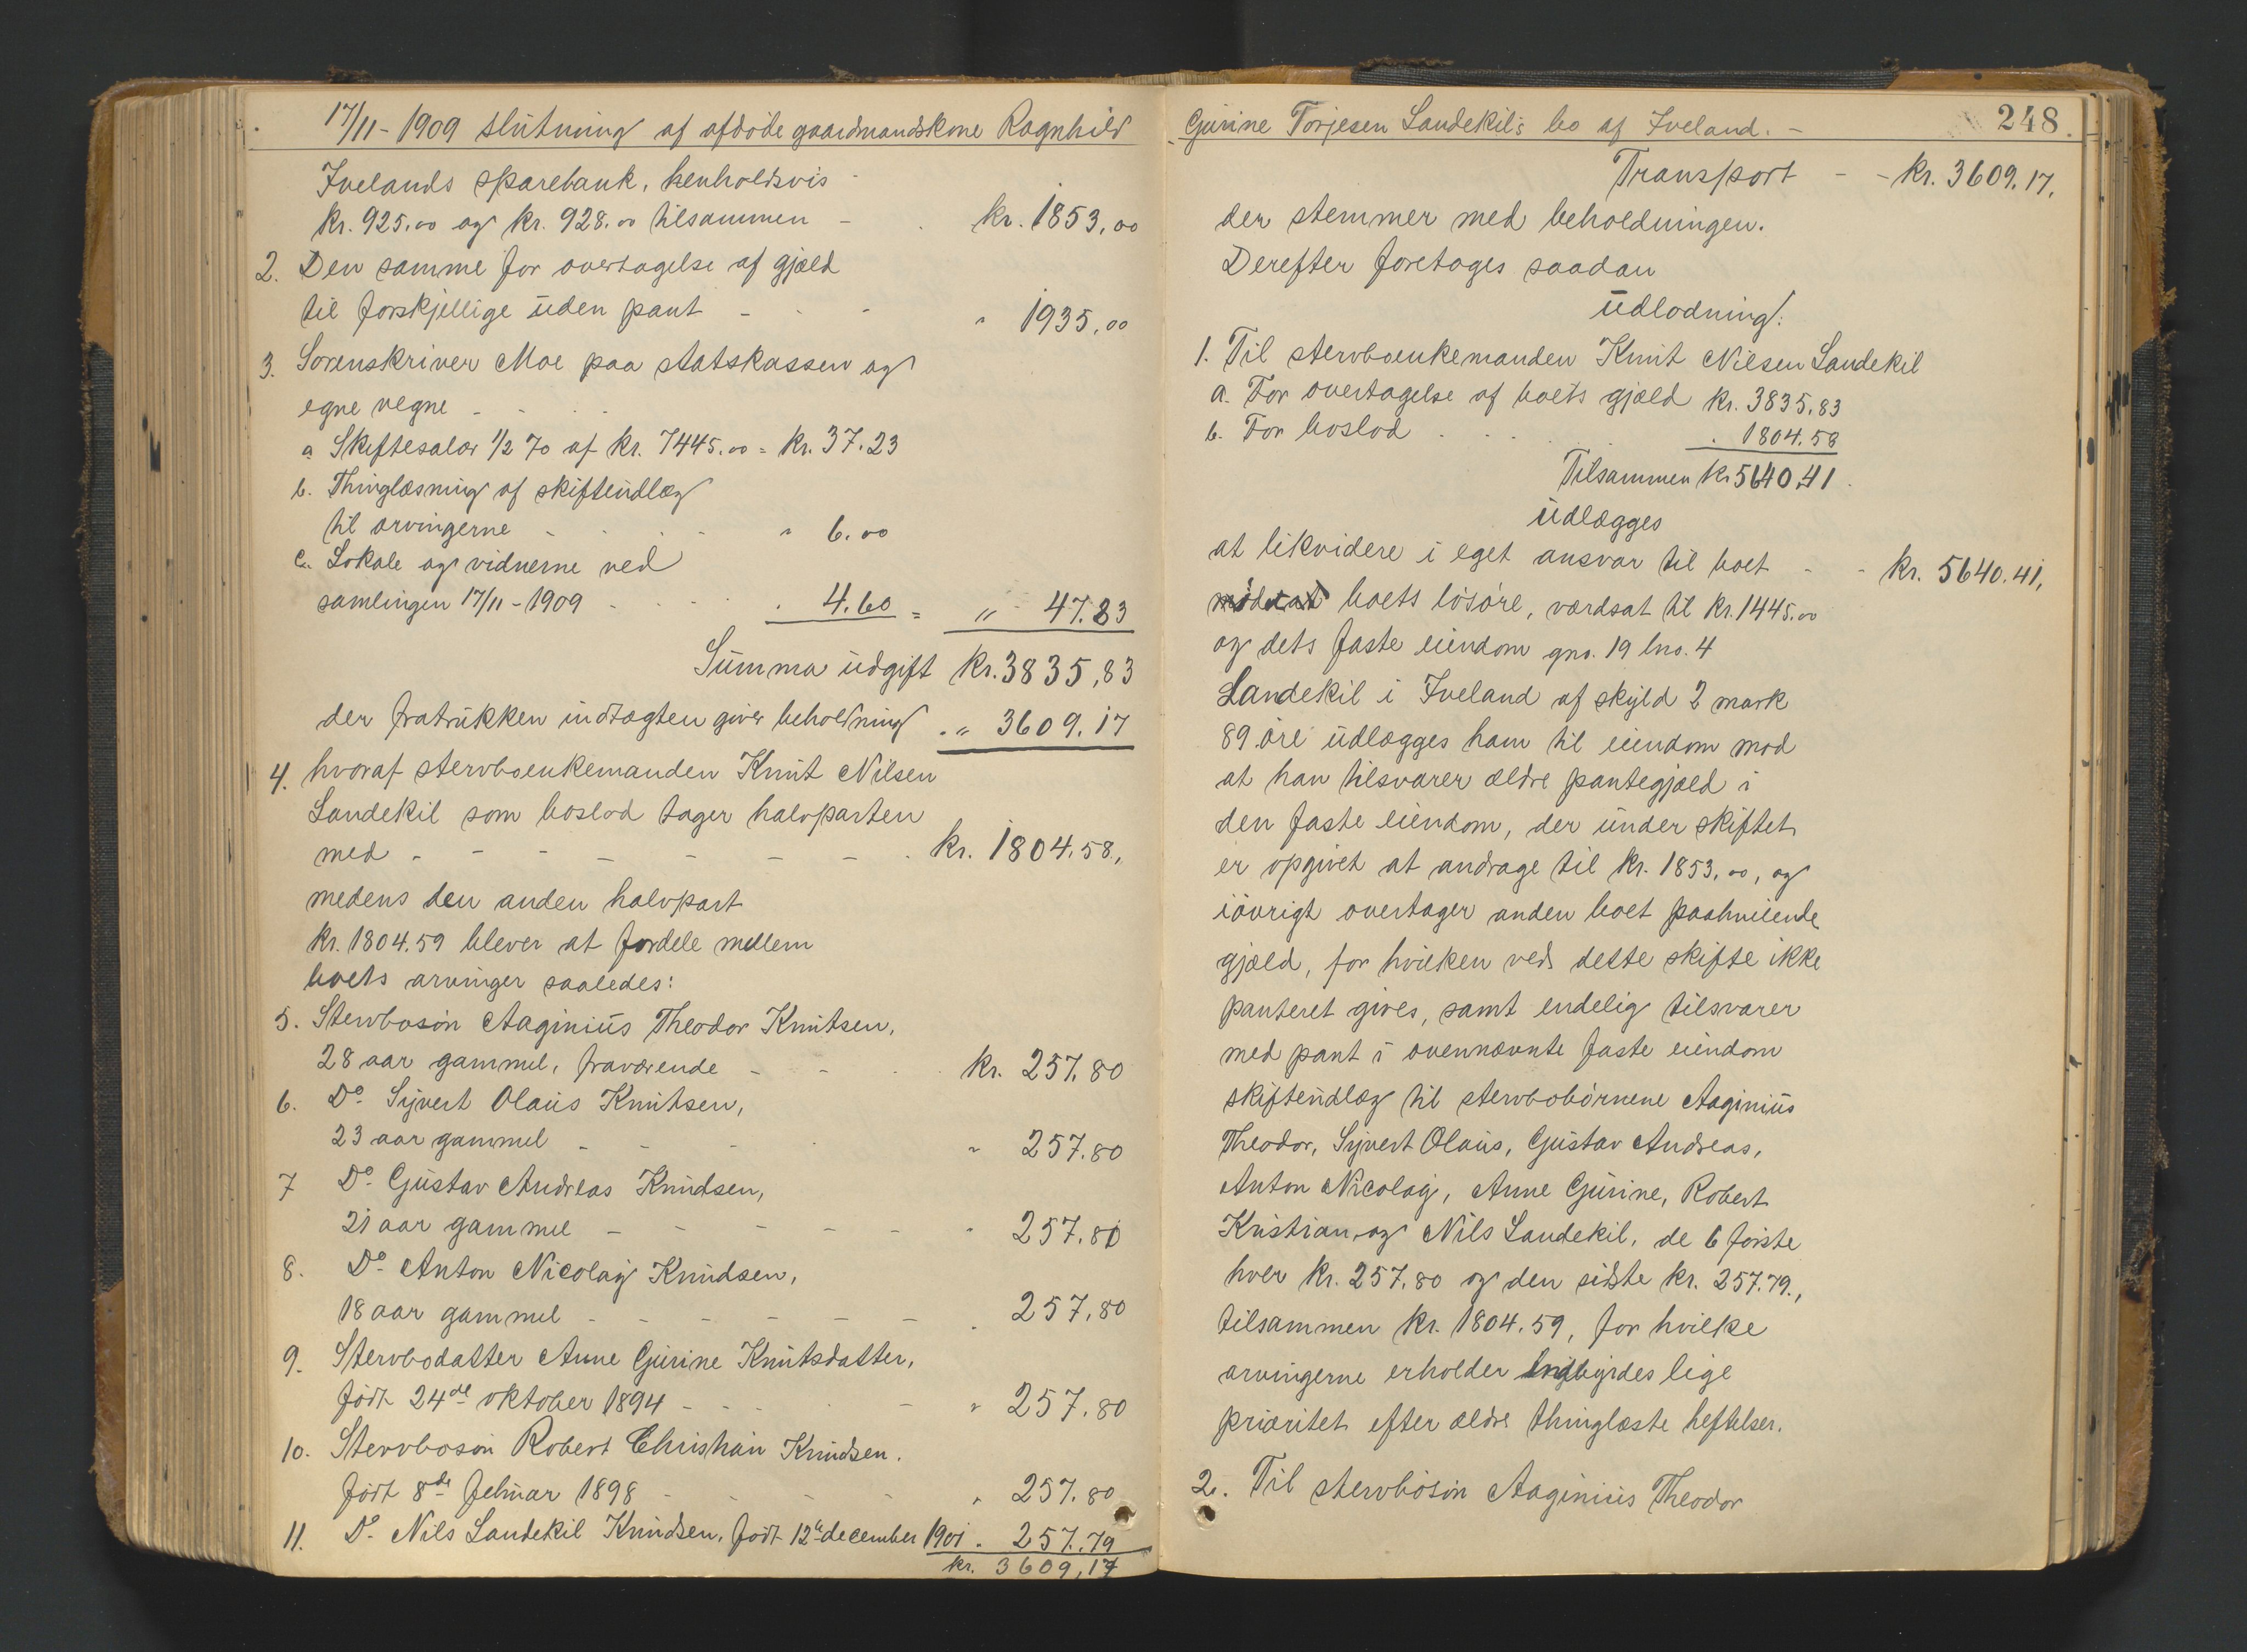 17/11 - 1909 slutning af afdøde gaardmandskone Ragnhild
Ivelands sparebank, henholdsvis
kr. 925.00 og kr. 928.00 tilsammen - kr. 1853,00
2. Den samme for overtagelse af gjæld
til forskjellige uden pant - - - " 1935,00
3. Sorenskriver Moe paa statskassen og
egne vegne - - - -
a Skiftesalær 1/2 % af kr. 7445.00 = kr. 37.23
b. Thinglæsning af skifteudlæg
til arvingerne - - - " 6.00
c. Lokale og vidnerne ved
samlingen 17/11 - 1909 - - - . 4.60 = " 47.83
Summa udgift kr. 3835,83
der fratrukken indtægten giver beholdning . " 3609.17
4. hvoraf stervboenkemanden Knut Nilsen
Landekil som boslod tager halvparten
med - - - - - - - - kr. 1804.58,
medens den anden halvpart
kr. 1804.59 blever at fordele mellem
boets arvinger saaledes:
5. Stervbosøn Aaginius Theodor Knutsen,
28 aar gammel, fraværende - - - kr. 257.80
6. Do Syvert Olaus Knutsen,
23 aar gammel - - - - " 257.80
7 Do Gustav Andreas Knudsen,
21 aar gammel - - - - - - 257.80
8. Do Anton Nicolay Knudsen,
18 aar gammel - - - - - - . 257.80
9. Stervbodatter Anne Gurine Knutsdatter,
født 24de oktober 1894 - - - - - " 257.80
10. Stervbosøn Robert Christian Knudsen.
født 8de februar 1898 - - - - " 257.80
11. Do Nils Landekil Knudsen, født 12te december 1901 . 257.79
kr. 3609,17
Gurine Torjesen Landekil's bo af Iveland. - 248.
Transport - - kr. 3609.17.
der stemmer med beholdningen.
Derefter foretoges saadan
udlodning:
1. Til stervboenkemanden Knut Nilsen Landekil
a. For overtagelse af boets gjæld kr. 3835.83
b. For boslod . . . . . 1804.58
Tilsammen kr 5640.41.
udlægges
at likvidere i eget ansvar til boet - - kr. 5640.41,
boets løsøre, værdsat til kr. 1445.00
og dets faste eiendom gno. 19 bno. 4
Landekil i Iveland af skyld 2 mark
89 øre udlægges ham til eiendom mod
at han tilsvarer ældre pantegjæld i
den faste eiendom, der under skiftet
er opgivet at andrage til kr. 1853.00, og
iøvrigt overtager anden boet paahvilende
gjæld, for hvilken ved dette skifte ikke
panteret gives, samt endelig tilsvarer
med pant i ovennævnte faste eiendom
skifteudlæg til stervbobørnene Aaginius
Theodor, Syvert Olaus, Gustav Andreas,
Anton Nicolay, Anne Gurine, Robert
Kristian og Nils Landekil, de 6 første
hver kr. 257.80 og den sidste kr. 257.79.,
tilsammen kr. 1804.59, for hvilke
arvingerne erholder indbyrdes lige
prioritet efter ældre thinglæste heftelser.
2. Til stervbosøn Aaginius Theodor